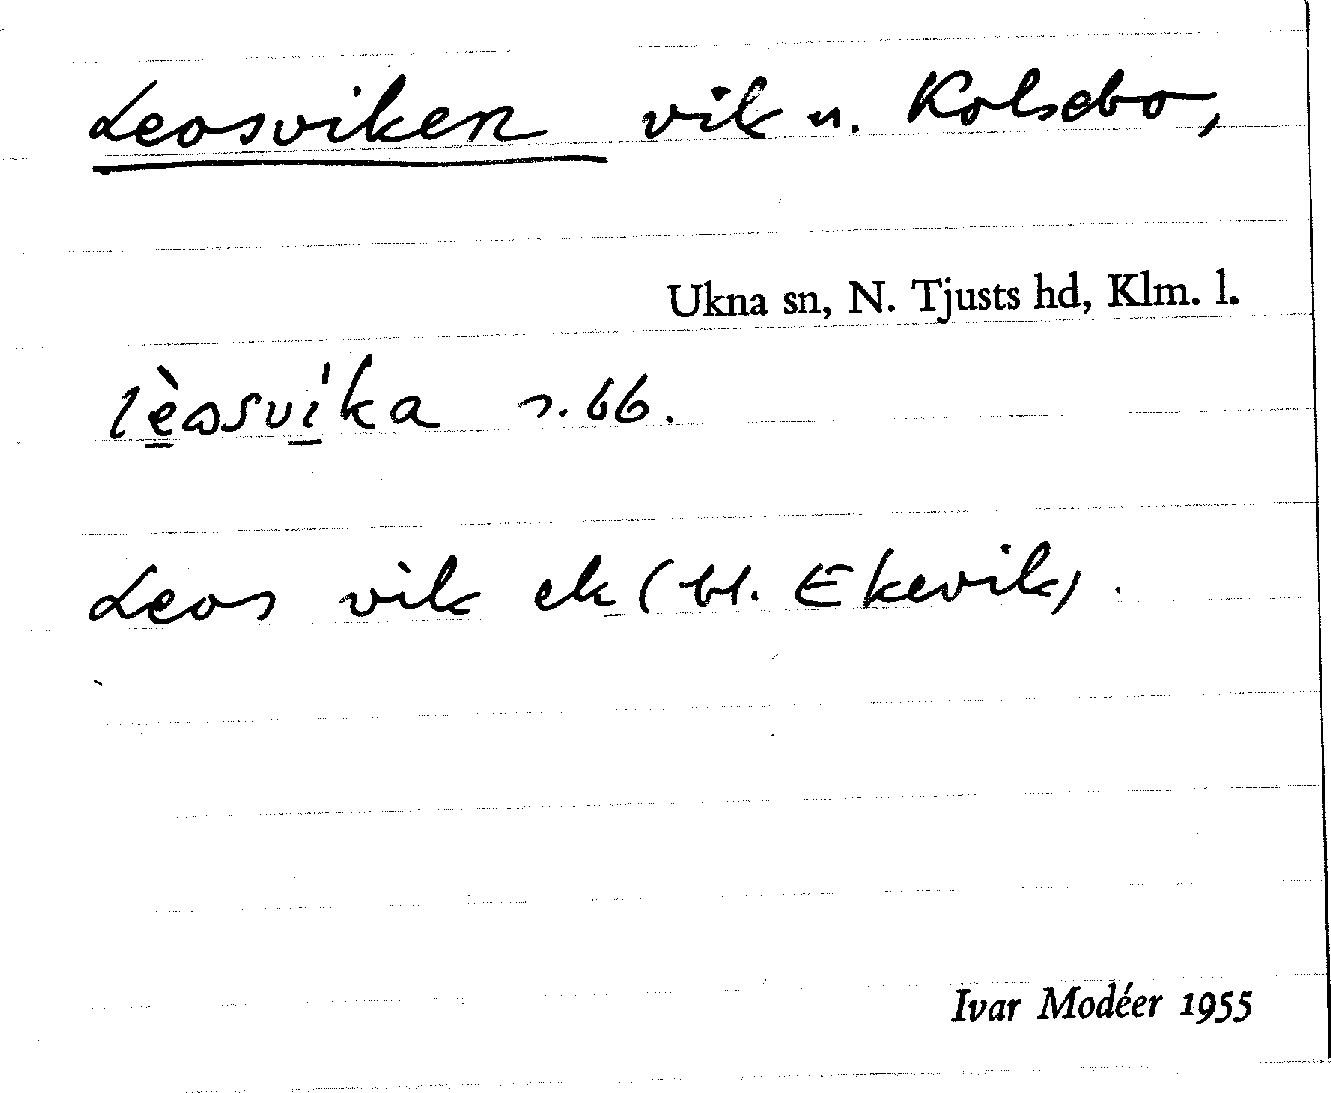 Leosviken vik n. Kolsebo,
Ukna sn, N. Tjusts hd, Klm. l.
lèosvi'ka s. 66.
Leos vik ek (bl. Ekevik).
Ivar Modéer 1955